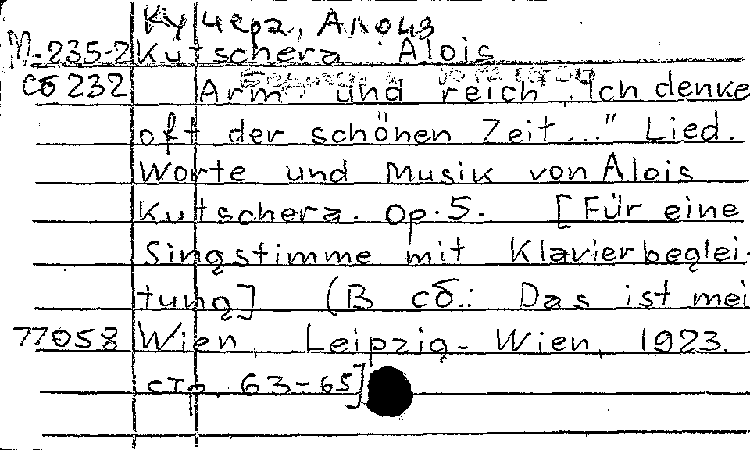 Кучера, Алоиз
М-235-2 Kutschera Alois
сб 232 Arm und reich "Ich denke
oft der schönen Zeit..." Lied.
Worte und Musik von Alois
Kutschera. Op. 5. [Für eine
Singstimme mit Klavierbeglei-
tung] (В сб.: Das ist mei
77058 Wien, Leipzig - Wien, 1923.
стр. 63-65]